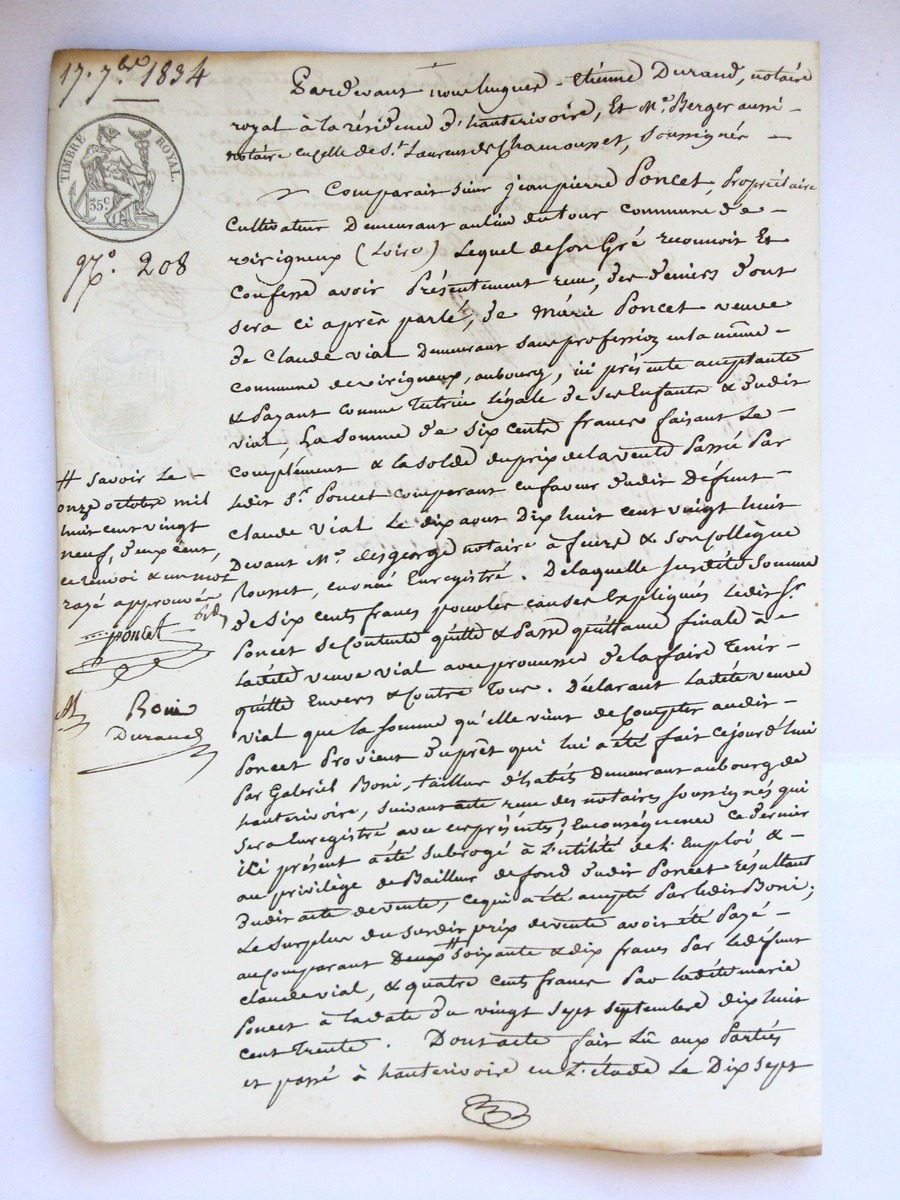 17. 7bre 1834
TIMBRE ROYAL.
35c
No. 208
Pardevant nous Etienne Durand, notaire
royal à la résidence d'hauterivoire, Et Me. Berger aussi
notaire en celle de St. Laurent de Chamousset, Soussignés
Comparait Sieur jeanpierre Poncet, Propriétaire
Cultivateur Demeurant au lieu du tour commune de
virigneux (Loire) Lequel de son Gré reconnoit Et
Confesse avoir Présentement reçu, des deniers dont
sera ci après parlé, de Marie Poncet veuve
de Claude vial Demeurant sans profession en la même
commune de virigneux, au bourg, ici présente acceptante
& Payant comme Tutrice légale de ses Enfants & dudit
vial, La Somme de six cents francs faisant Le
complément & la solde du prix de la vente Passé Par
ledit Sr. Poncet comparant en faveur dudit Défunt
Claude vial Le dix aout Dix huit cent vingt huit
Devant Me. desgeorge notaire à feurs & son Collègue
Rousset, Enregistré. De laquelle Susdite Somme
de Six cents francs pour les causes Expliqués Ledit Sr.
Poncet Se Contente quitte & Passe quittance finale à
Ladite veuve vial avec promesse de la faire Tenir
quitte Envers & Contre Tous. Déclarant Ladite veuve
vial que la Somme qu'elle vient de Compter audit
Poncet Provient du prêt qui lui a été fait cejourd'hui
Par Gabriel Boni, tailleur d'habits demeurant au bourg de
hauterivoire, suivant acte reçu des notaires Soussignés qui
sera Enregistré avec ces présentes; En conséquence ce dernier
ici présent a été subrogé à L'utilité de l'Emploi &
au privilège de Bailleur de fond dudit Poncet résultant
dudit acte de vente, ce qui a été accepté Par ledit Boni;
Le Surplus du susdit prix de vente avoit été Payé
au Comparant Deux # Soixante & dix francs Par le défunt
Claude vial, & quatre cents francs Par ladite marie
Poncet à la date du vingt Sept Septembre dix huit
cent Trente. Dont acte fait Lû aux Parties
et passé à hauterivoire en L'étude Le Dix Sept
# Savoir Le
onze octobre mil
huit cent vingt
neuf, deux cent,
ce renvoi & un mot
rayé approuvés
poncet
Boni
Durand